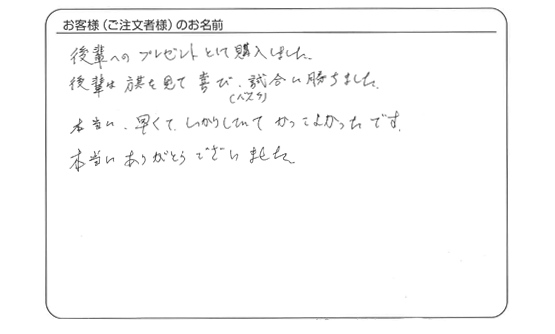 お客様(ご注文者様)のお名前
後輩へのプレゼントとして購入しました。
後輩は旗を見て喜び、試合に勝ちました。
(バスケ)
本当に、早くて、しっかりしていてかってよかったです。
本当にありがとうございました。